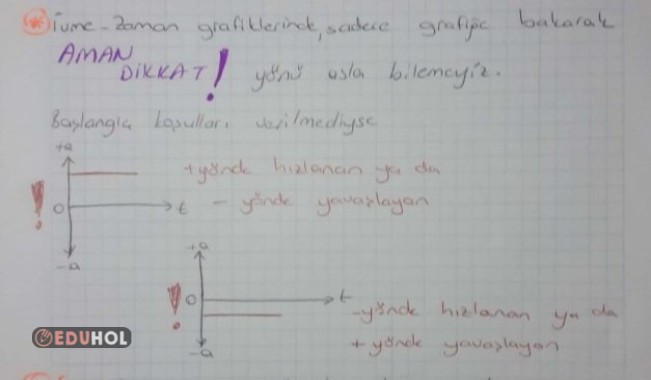 * İvme-Zaman grafiklerinde, sadece grafiğe bakarak
AMAN DİKKAT! yönü asla bilemeyiz.
Başlangıç koşulları verilmediyse
+a
! + yönde hızlanan ya da
0 t - yönde yavaşlayan
-a
+a
! 0 t
- yönde hızlanan ya da
-a + yönde yavaşlayan
EDUHOL